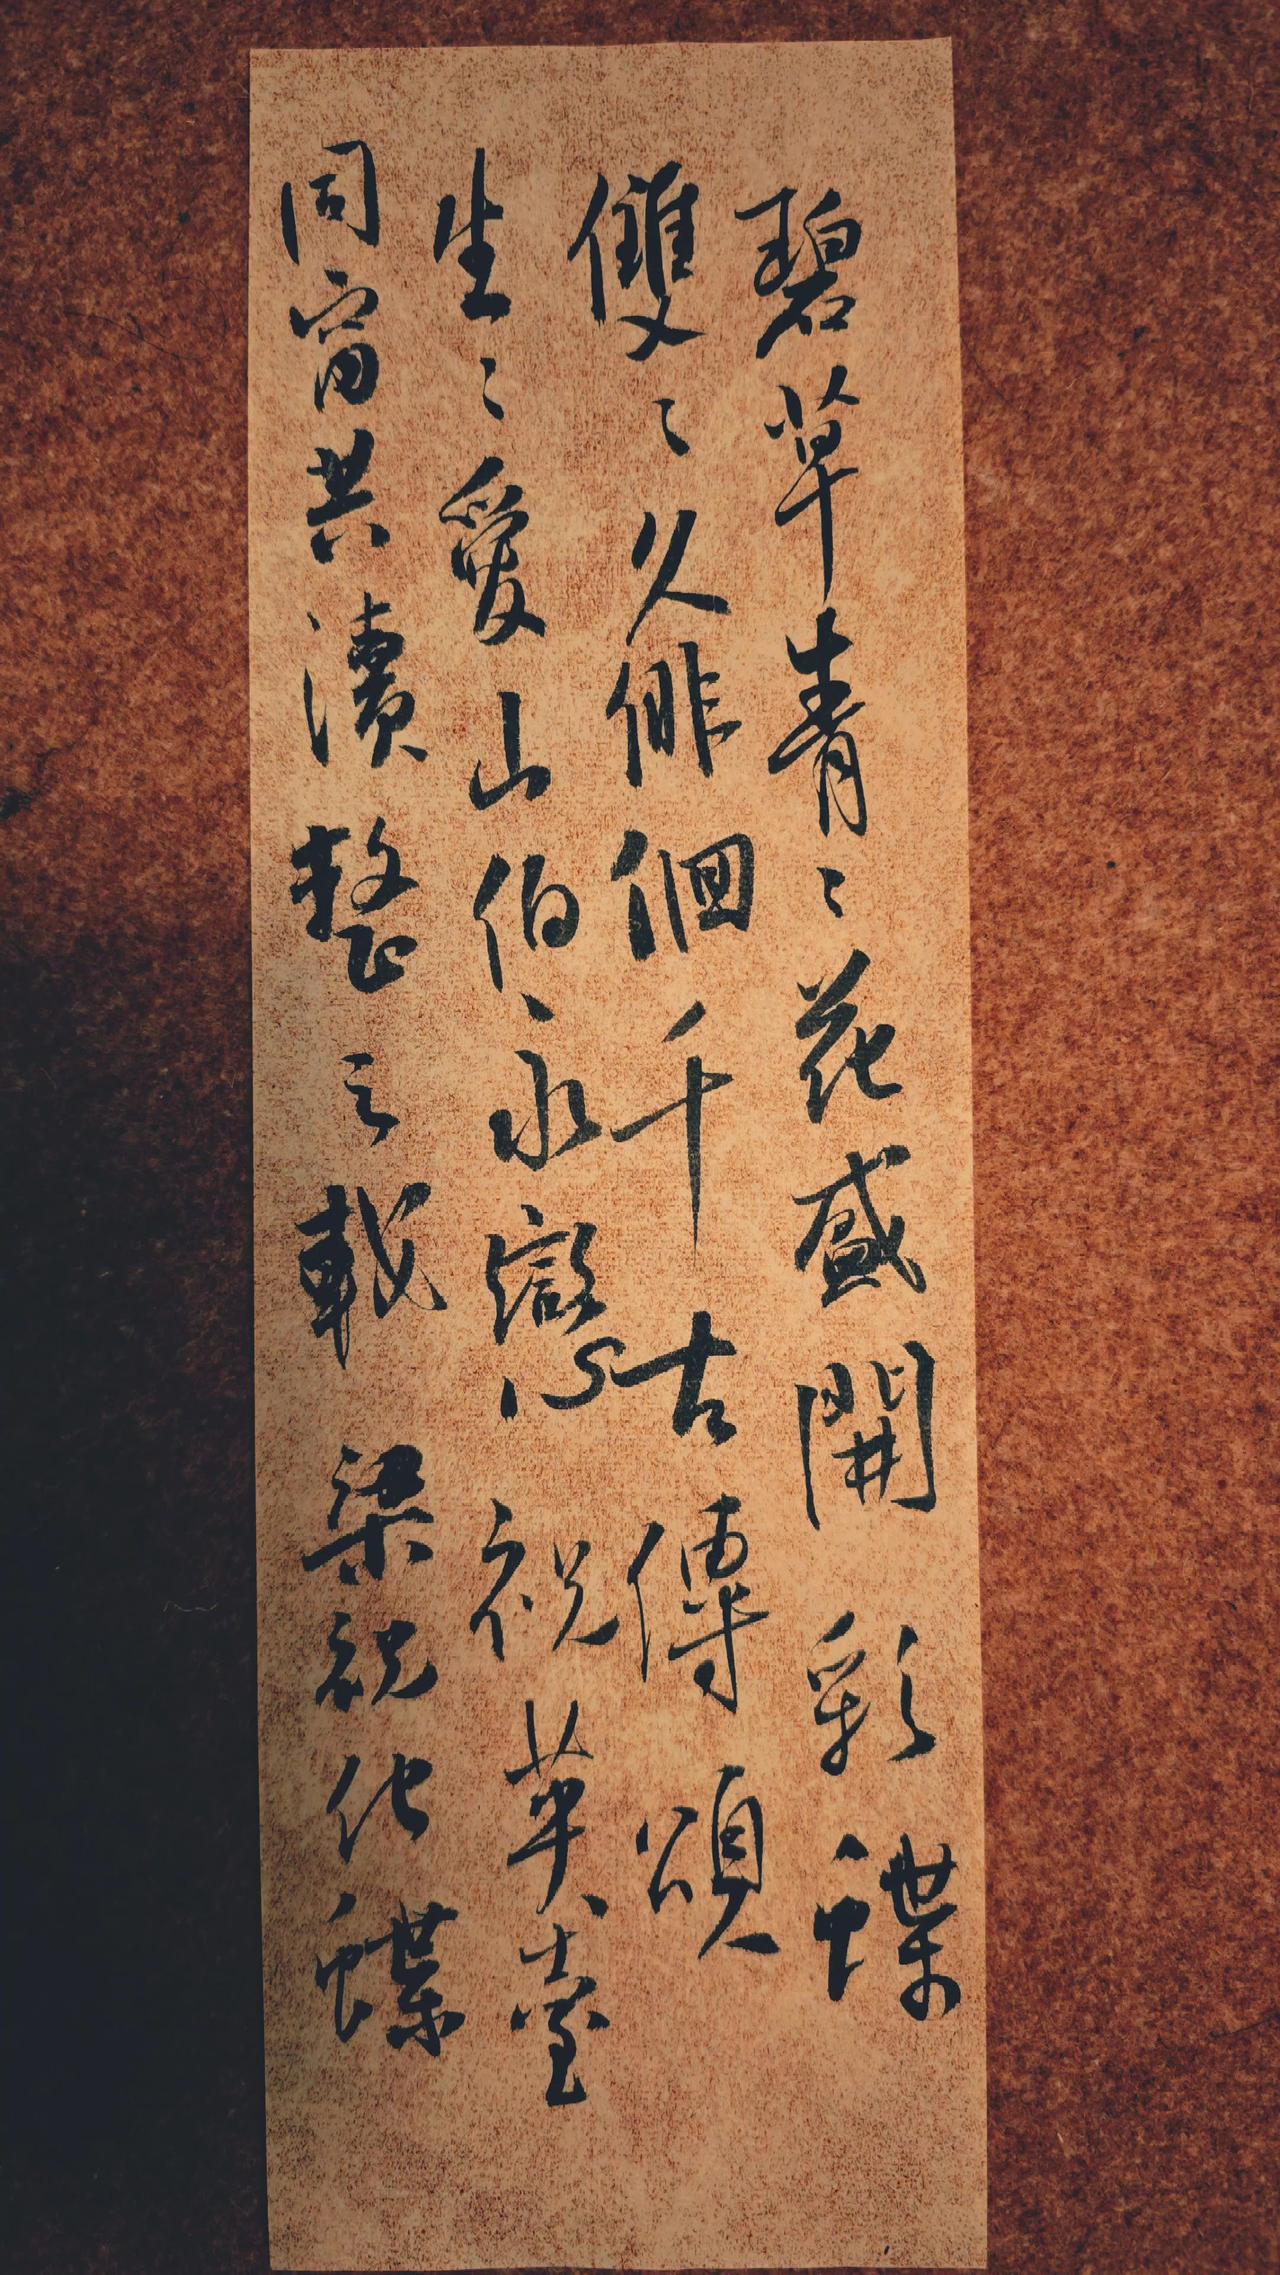 碧草青〻花盛開彩蝶
雙〻久俳徊千古傳頌
生〻愛山伯永戀祝英臺
同窗共讀整之載梁祝化蝶